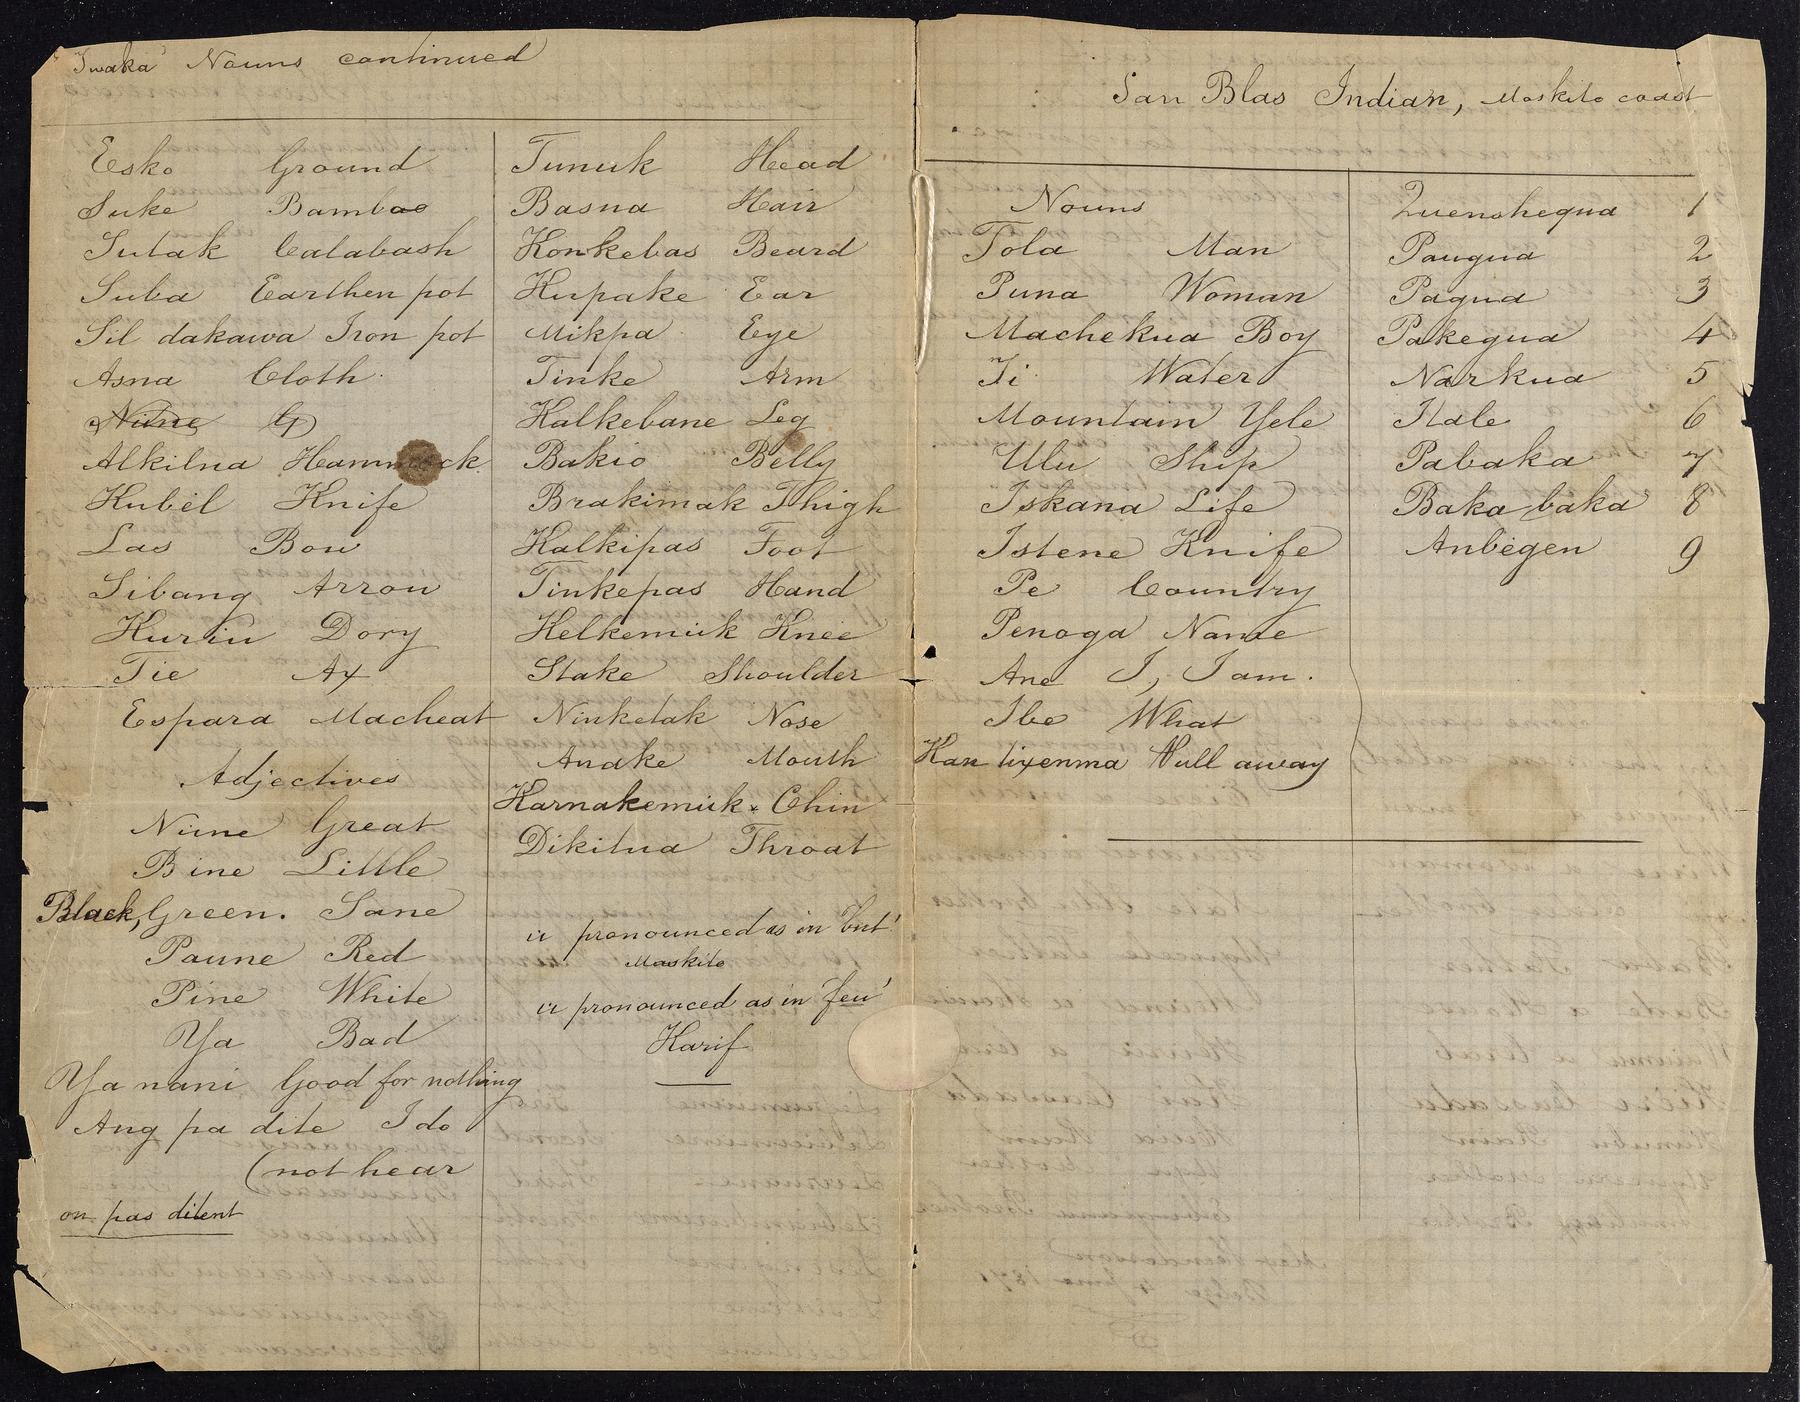 Twaka Nouns continued
Esko Ground
Suke Bamboo
Sutak Calabash
Suba Earthen pot
Sil dakawa Iron pot
Asna Cloth
Nüne G
Alkilna Hammock
Kubël Knife
Las Bow
Sibang Arrow
Kuriu Dory
Tie Ax
Espara Macheat
Adjectives
Nüne Great
Bine Little
Black, Green. Sane
Paune Red
Pine White
Ya Bad
Ya nani Good for nothing
Ang pa dite I do
(not hear
on pas ditent
Tunuk Head
Basna Hair
Konkebas Beard
Kupake Ear
Mikpa Eye
Tinke Arm
Kalkebane Leg
Bakio Belly
Brakimak Thigh
Kalkipas Foot
Tinkepas Hand
Kelkemük Knee
Stake Shoulder
Ninketak Nose
Andke Mouth
Karnakemük Chin
Dikitna Throat
ü pronounced as in 'but'
Moskito
ü pronounced as in 'feu'
Karif
San Blas Indian, Moskito coast
Nouns
Tola Man
Puna Woman
Machekua Boy
Ti Water
Mountain Yele
Ulu Ship
Iskana Life
Istene Knife
Pe Country
Penoga Name
Ane I, I am.
Ibe What
Kan tixenma Pull away
Quenshequa 1
Paugua 2
Pagua 3
Pakegua 4
Narkua 5
Nale 6
Pabaka 7
Baka baka 8
Anbëgen 9